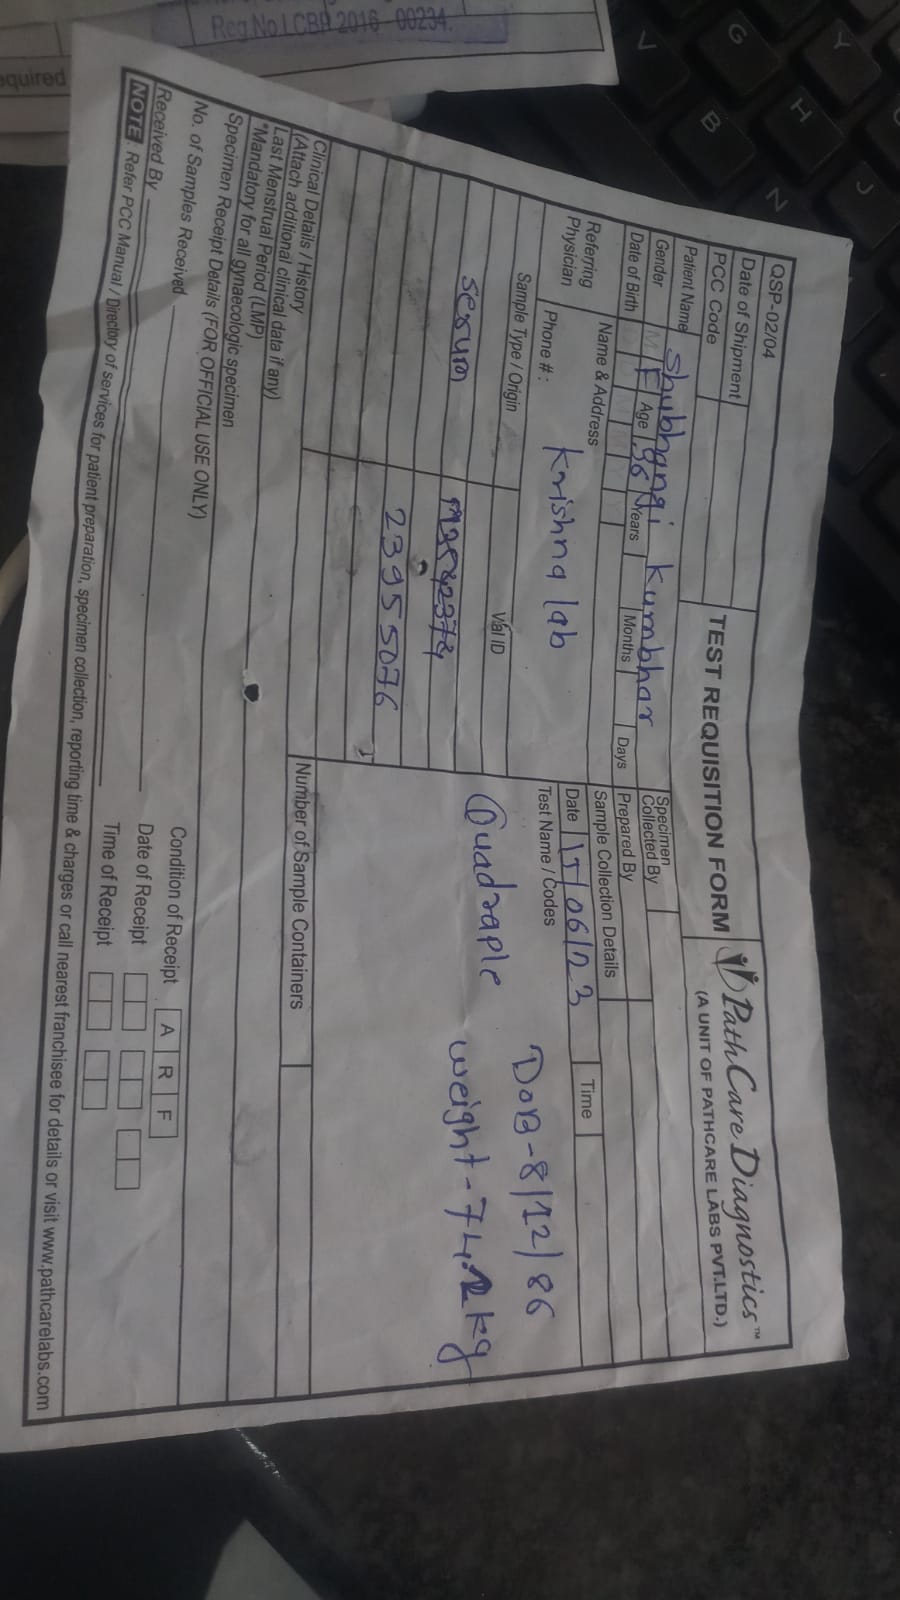 Reg.No.LCBP 2016 - 00234.
equired
QSP-02/04
TEST REQUISITION FORM
PathCare Diagnostics™
(A UNIT OF PATHCARE LABS PVT.LTD.)
Date of Shipment
PCC Code
Patient Name Shubhangi Kumbhar
Specimen Collected By
Gender M F Age 36 Years Months Days
Prepared By
Date of Birth
Sample Collection Details
Referring Physician
Name & Address
Krishna lab
Date 15/06/23 Time
Phone # :
Test Name / Codes
DOB-8/12/86
Sample Type / Origin
Vial ID
serum
Quadraple weight-74.2kg
23955076
Clinical Details / History
(Attach additional clinical data if any)
Number of Sample Containers
Last Menstrual Period (LMP)
*Mandatory for all gynaecologic specimen
Specimen Receipt Details (FOR OFFICIAL USE ONLY)
No. of Samples Received
Condition of Receipt A R F
Received By
Date of Receipt
Time of Receipt
NOTE: Refer PCC Manual / Directory of services for patient preparation, specimen collection, reporting time & charges or call nearest franchisee for details or visit www.pathcarelabs.com
V G Y
B H J
N